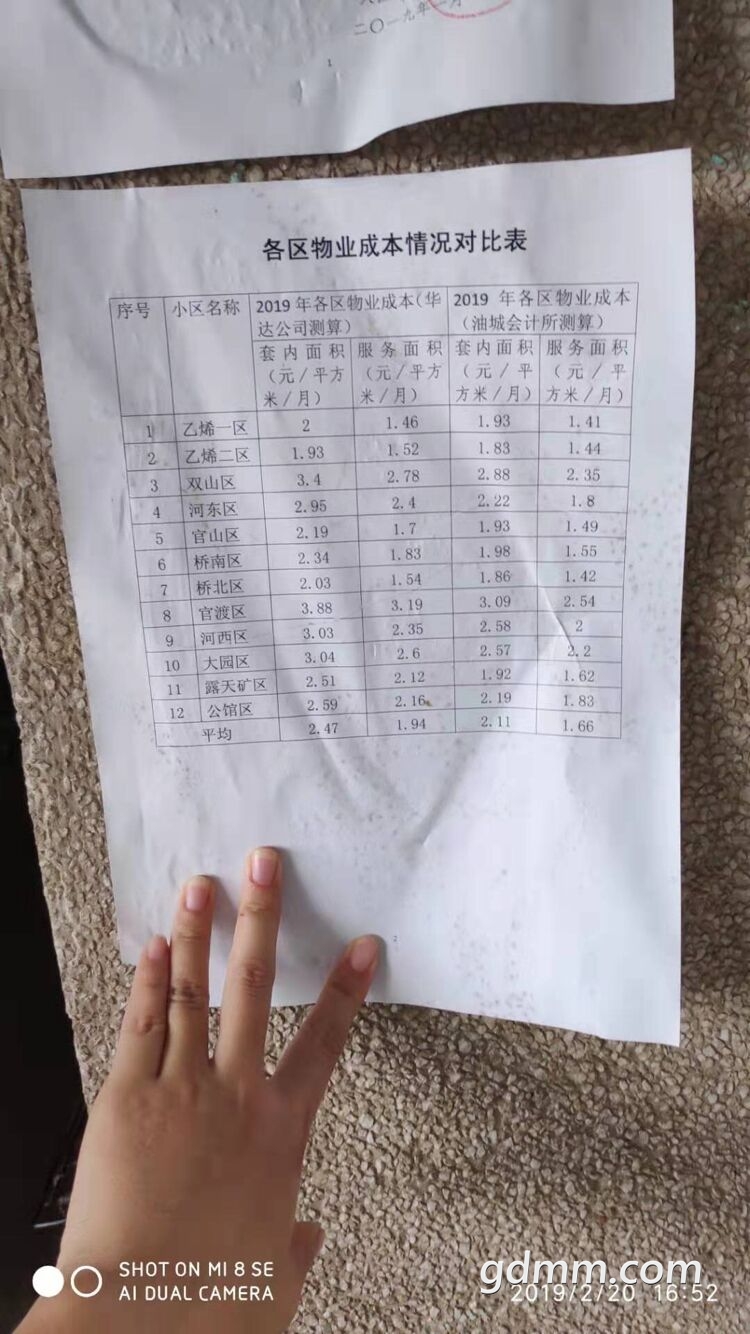 二〇一九年一月
1
各区物业成本情况对比表
序号 小区名称 2019 年各区物业成本(华达公司测算) 2019 年各区物业成本(油城会计所测算)
套内面积(元/平方米/月) 服务面积(元/平方米/月) 套内面积(元/平方米/月) 服务面积(元/平方米/月)
1 乙烯一区 2 1.46 1.93 1.41
2 乙烯二区 1.93 1.52 1.83 1.44
3 双山区 3.4 2.78 2.88 2.35
4 河东区 2.95 2.4 2.22 1.8
5 官山区 2.19 1.7 1.93 1.49
6 桥南区 2.34 1.83 1.98 1.55
7 桥北区 2.03 1.54 1.86 1.42
8 官渡区 3.88 3.19 3.09 2.54
9 河西区 3.03 2.35 2.58 2
10 大园区 3.04 2.6 2.57 2.2
11 露天矿区 2.51 2.12 1.92 1.62
12 公馆区 2.59 2.16 2.19 1.83
平均 2.47 1.94 2.11 1.66
2
SHOT ON MI 8 SE
AI DUAL CAMERA
gdmm.com
2019/2/20 16:52